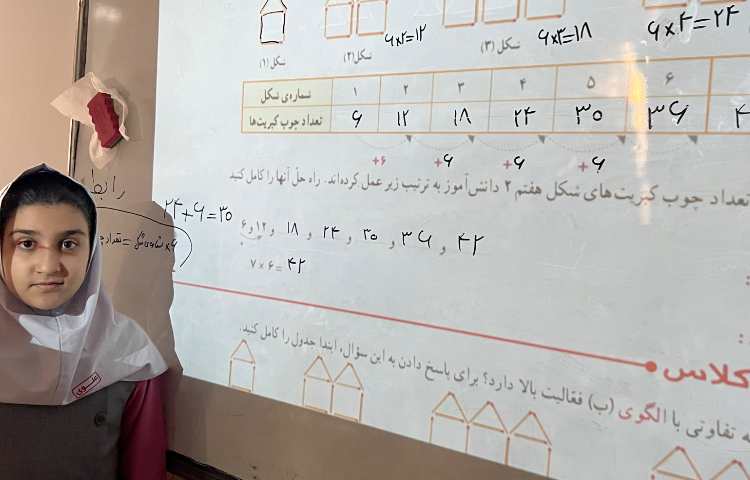 ۶×۲=۱۲
۶×۳=۱۸
۶×۴=۲۴
شکل (۱)
شکل (۲)
شکل (۳)
شماره‌ی شکل ۱ ۲ ۳ ۴ ۵ ۶
تعداد چوب کبریت‌ها ۶ ۱۲ ۱۸ ۲۴ ۳۰ ۳۶
+۶ +۶ +۶ +۶
تعداد چوب کبریت‌های شکل هفتم ۲ دانش‌آموز به ترتیب زیر عمل کرده‌اند. راه حلّ آنها را کامل کنید
۲۴+۶=۳۰
۶ و ۱۲ و ۱۸ و ۲۴ و ۳۰ و ۳۶ و ۴۲
۷×۶=۴۲
کلاس
تفاوتی با الگوی (ب) فعالیت بالا دارد؟ برای پاسخ دادن به این سؤال، ابتدا جدول را کامل کنید.